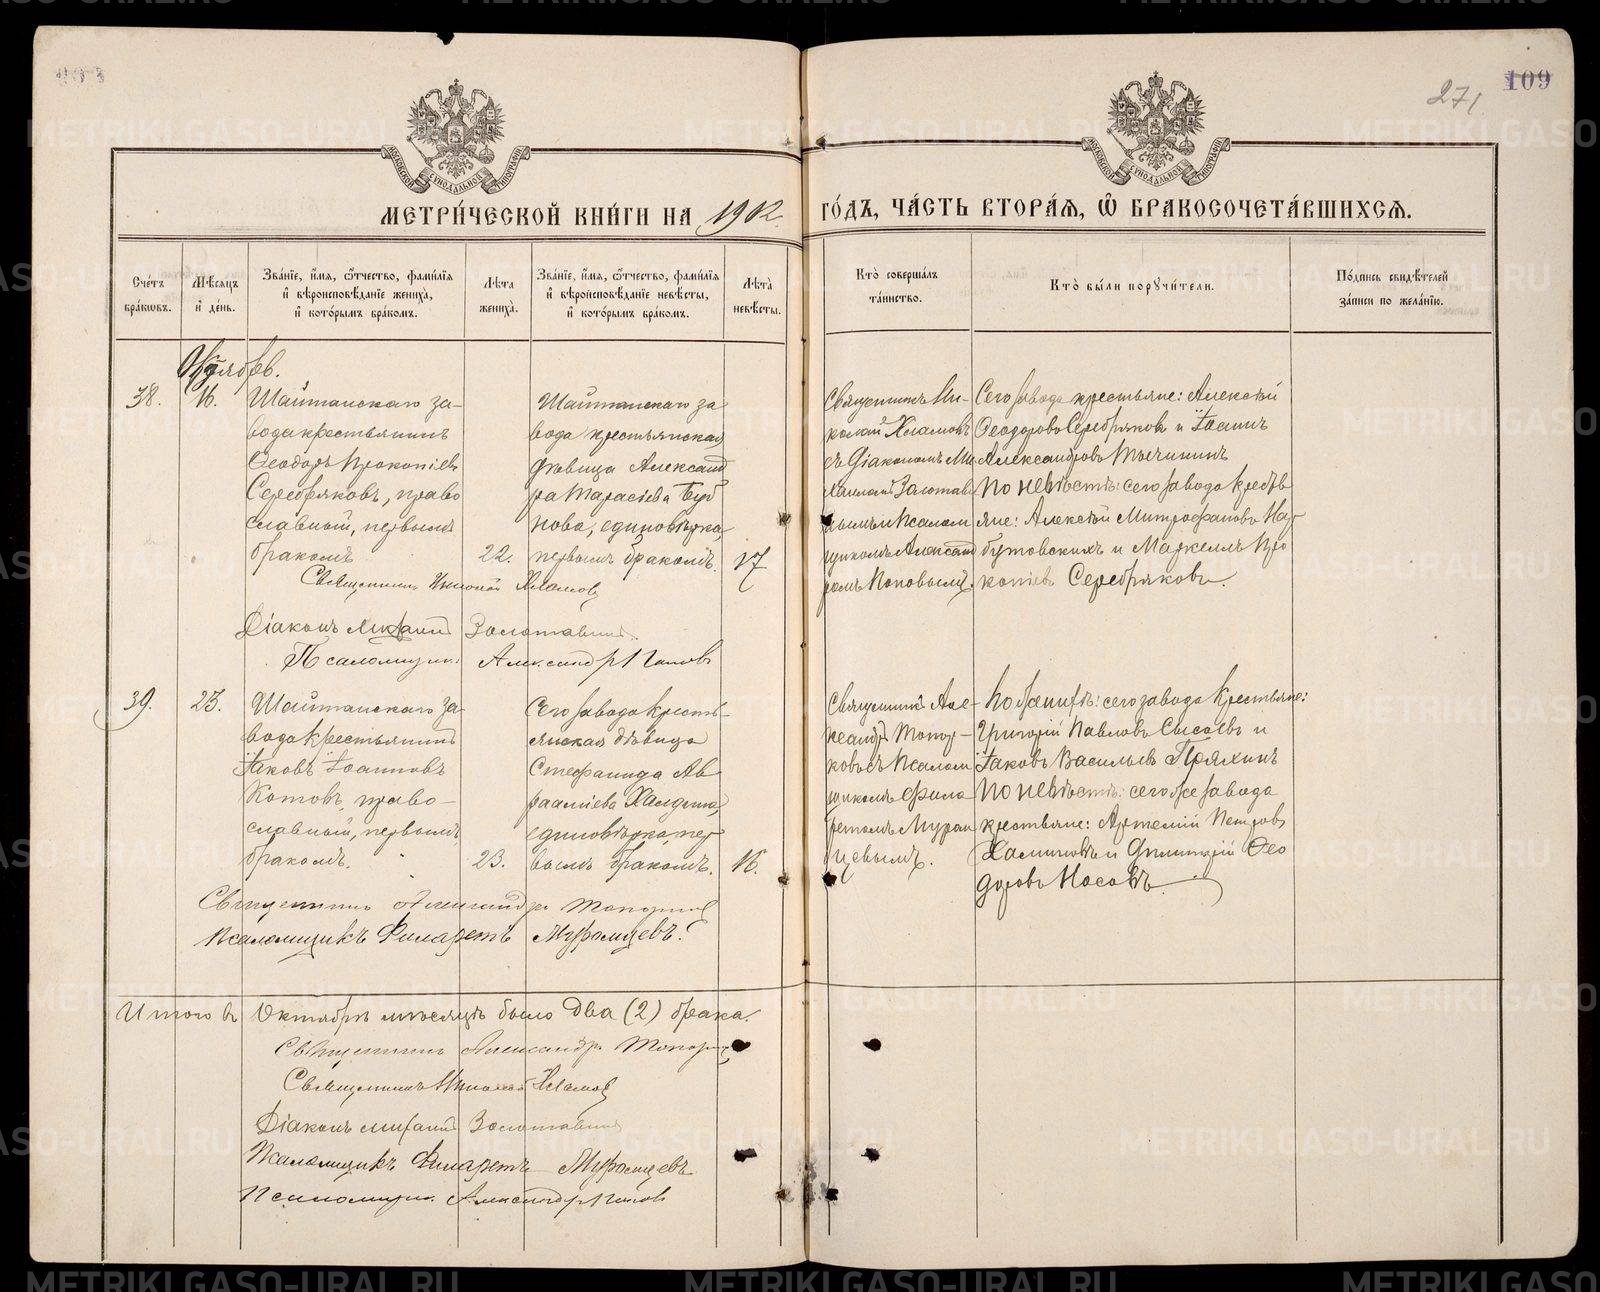 109
271
МОСКОВСКОЙ СУНОДАЛЬНОЙ ТИПОГРАФІИ
МОСКОВСКОЙ СУНОДАЛЬНОЙ ТИПОГРАФІИ
МЕТРИ́ЧЕСКОЙ КНИ́ГИ НА 1902 ГО́ДЪ, ЧА́СТЬ ВТОРА́Я, Ѽ БРАКОСОЧЕТА́ВШИХСЯ.
Сче́тъ бра́кѡвъ.
Мѣ́сѧцъ и҆ де́нь.
Зва́нїе, и҆́мѧ, ѻ҆́тчество, фами́лїѧ и҆ вѣроисповѣ́данїе жениха̀, и҆ кото́рымъ бра́комъ.
Лѣ́та жениха̀.
Зва́нїе, и҆́мѧ, ѻ҆́тчество, фами́лїѧ и҆ вѣроисповѣ́данїе невѣ́сты, и҆ кото́рымъ бра́комъ.
Лѣ́та невѣ́сты.
Кто̀ соверша́лъ та́инство.
Кто̀ бы́ли порꙋчи́тели.
По́дпись свидѣ́телей за́писи по жела́нїю.
Октябрь.
38.
16.
Шайтанскаго за-
вода крестьянинъ
Ѳеодоръ Прокопіевъ
Серебряковъ, право
славный, первымъ
бракомъ
22.
Шайтанскаго за
вода крестьянская
дѣвица Александ
ра Тарасіева
нова, единовѣрка,
первымъ бракомъ.
17
Священникъ Ни-
колай Хламовъ
съ Діакономъ Ми
хаиломъ Золотав
нымъ и Псалом
щикомъ Александ
ромъ Поповымъ.
Сего завода крестьяне: Алексѣй
Ѳеодоровъ Серебряковъ и Іоаннъ
Александровъ
По невѣстѣ: сего завода крестья
не: Алексѣй Митрофановъ Нар
бутовскихъ и Маркеллъ Про
копіевъ Серебряковъ.
Священникъ Николай Хламовъ
Діаконъ Михаилъ Золотавинъ.
Псаломщикъ Александръ Поповъ
39.
23.
Шайтанскаго за-
вода крестьянинъ
Іаковъ Іоанновъ
Котовъ, право-
славный, первымъ
бракомъ.
23.
Сего завода кресть-
янская дѣвица
Стефанида Ав
рааміева
единовѣрка, пер
вымъ бракомъ.
16.
Священникъ Але-
ксандръ Топор-
ковъ съ Псалом
щикомъ Фила
ретомъ Муром
цевымъ.
По женихѣ: сего завода крестьяне:
Григорій Павловъ Сысоевъ и
Іаковъ Васильевъ Пряхинъ
По невѣстѣ: сего же завода
крестьяне: Артемій Петровъ
Халтуринъ и Димитрій Ѳео
доровъ Носовъ.
Священникъ Александръ Топорковъ
Псаломщикъ Филаретъ Муромцевъ.
Итого въ Октябрѣ мѣсяцѣ было два (2) брака.
Священникъ Александръ Топорковъ
Священникъ Николай Хламовъ
Діаконъ Михаилъ Золотавинъ
Псаломщикъ Филаретъ Муромцевъ
Псаломщикъ Александръ Поповъ
METRIKI.GASO-URAL.RU